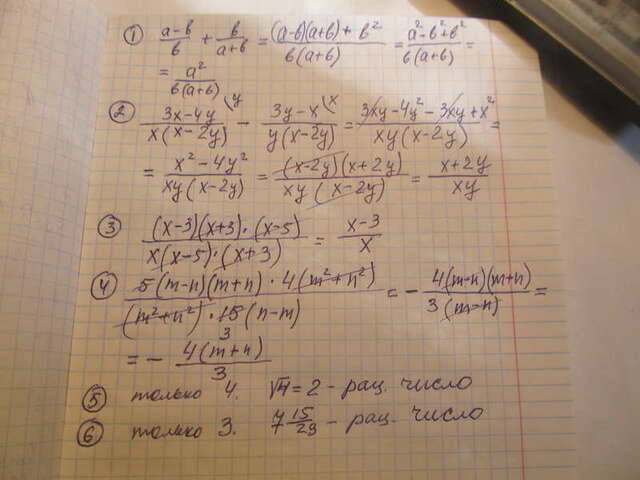 ① (a-b)/b + b/(a+b) = ((a-b)(a+b) + b²)/(b(a+b)) = (a²-b²+b²)/(b(a+b)) =
= a²/(b(a+b))
② (3x-4y)/(x(x-2y)) \y - (3y-x)/(y(x-2y)) \x = (3xy-4y²-3xy+x²)/(xy(x-2y)) =
= (x²-4y²)/(xy(x-2y)) = ((x-2y)(x+2y))/(xy(x-2y)) = (x+2y)/(xy)
③ ((x-3)(x+3)·(x-5))/(x(x-5)·(x+3)) = (x-3)/x
④ (5(m-n)(m+n)·4(m²+n²))/((m²+n²)·15(n-m)) 3 = - (4(m-n)(m+n))/(3(m-n)) =
= - (4(m+n))/3
⑤ только 4. √4 = 2 - рац. число
⑥ только 3. 7 15/29 - рац. число